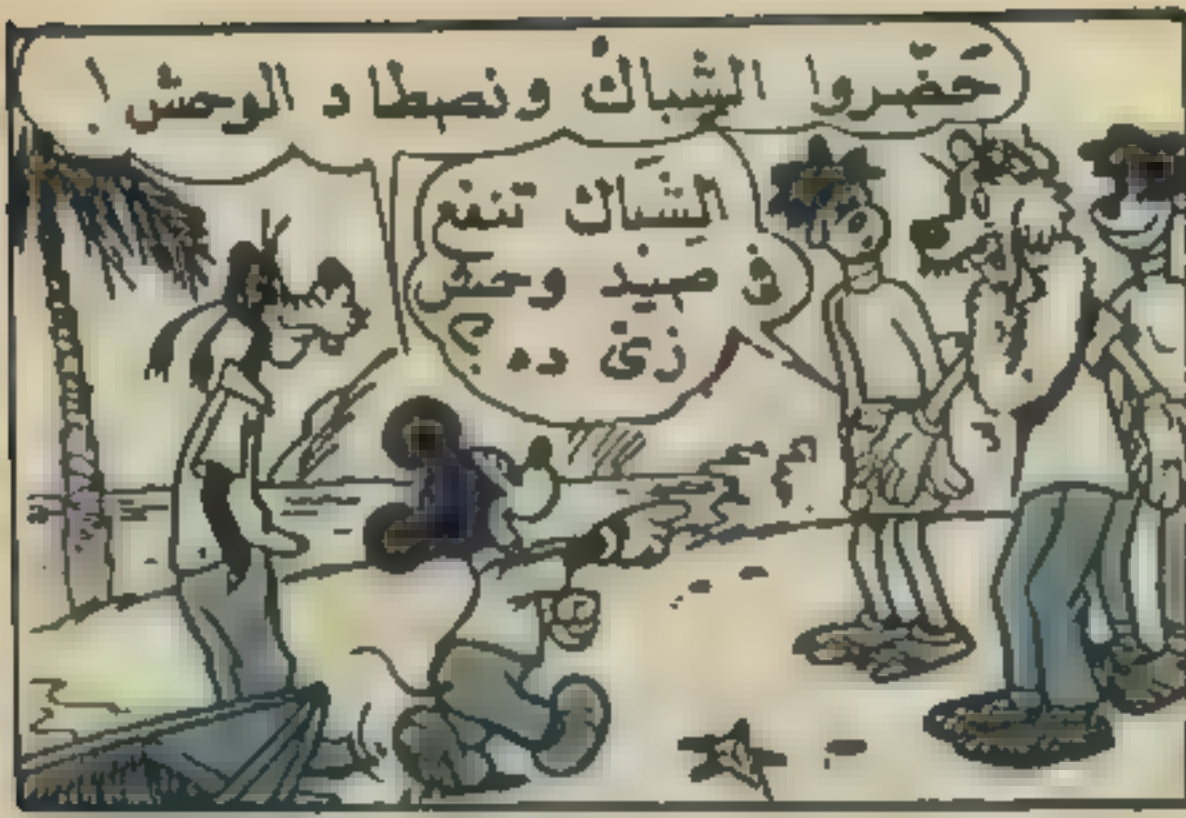 حَضّروا الشِباكْ ونصطاد الوحش !
الشَباك تنفع
فى صيد وحش
زىّ ده ؟